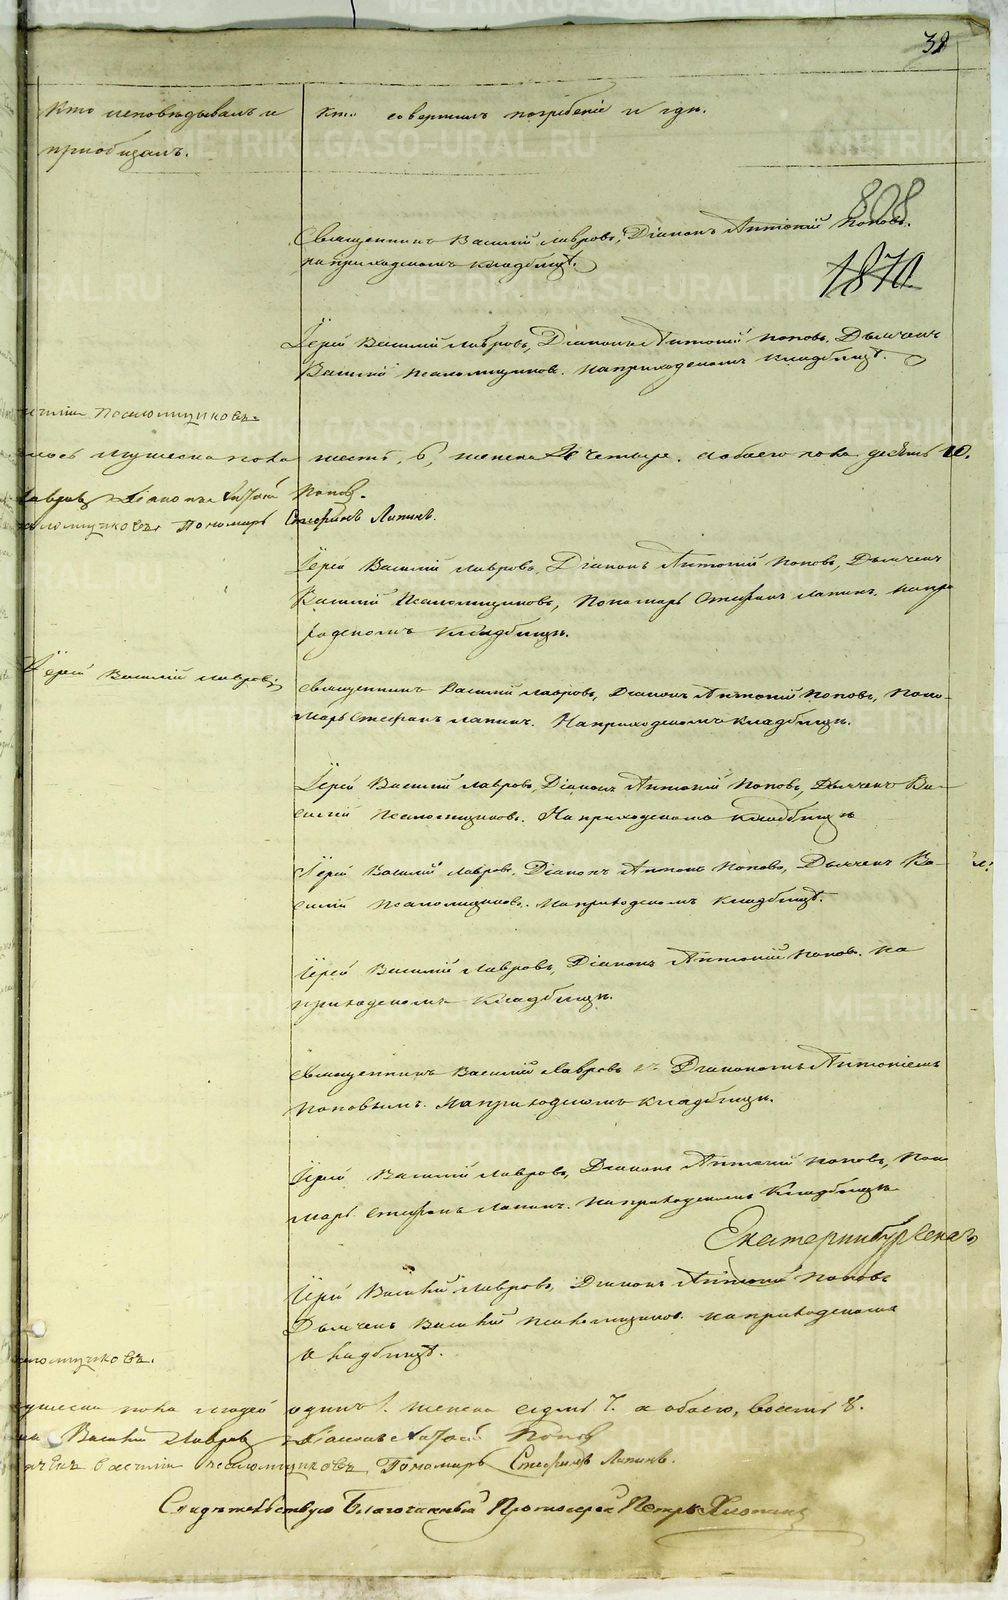 38
Кто исповѣдывалъ и
приобщалъ.
Кто совершилъ погребеніе и гдѣ.
808
1870
Священникъ Василій Лавровъ, Діаконъ Антоній Поповъ.
на приходскомъ кладбищѣ.
Іерей Василій Лавровъ, Діаконъ Антоній Поповъ, Дьячекъ
Василій Псаломщиковъ. На приходскомъ кладбищѣ.
Псаломщиковъ.
мужеска пола шесть, 6, женска 4 четыре. а обоего пола десять 10.
Лавровъ Діаконъ Антоній Поповъ.
Пономарь Стефанъ Лапинъ.
Іерей Василій Лавровъ, Діаконъ Антоній Поповъ, Дьячекъ
Василій Псаломщиковъ, Пономарь Стефанъ Лапинъ. На при
ходскомъ кладбищѣ.
Іерей Василій Лавровъ
Священникъ Василій Лавровъ, Діаконъ Антоній Поповъ, Поно-
марь Стефанъ Лапинъ. На приходскомъ кладбищѣ.
Іерей Василій Лавровъ, Діаконъ Антоній Поповъ, Дьячекъ Ва-
силій Псаломщиковъ. На приходскомъ кладбищѣ
Іерей Василій Лавровъ, Діаконъ Антоній Поповъ, Дьячекъ Ва-
силій Псаломщиковъ. На приходскомъ кладбищѣ.
Іерей Василій Лавровъ, Діаконъ Антоній Поповъ. На
приходскомъ кладбищѣ.
Священникъ Василій Лавровъ съ Діакономъ Антоніемъ
Поповымъ. На приходскомъ кладбищѣ.
Іерей Василій Лавровъ, Діаконъ Антоній Поповъ, Поно
марь Стефанъ Лапинъ. На приходскомъ кладбищѣ
Екатеринбургскаго
Іерей Василій Лавровъ, Діаконъ Антоній Поповъ
Дьячекъ Василій Псаломщиковъ. На приходскомъ
кладбищѣ.
мужеска пола людей одинъ 1. женска седмь 7. а обоего, восемь 8.
Василій Лавровъ Діаконъ Антоній Поповъ
Василій Псаломщиковъ, Пономарь Стефанъ Лапинъ.
Свидѣтельствую Благочинный Протоіерей Петръ
METRIKI.GASO-URAL.RU